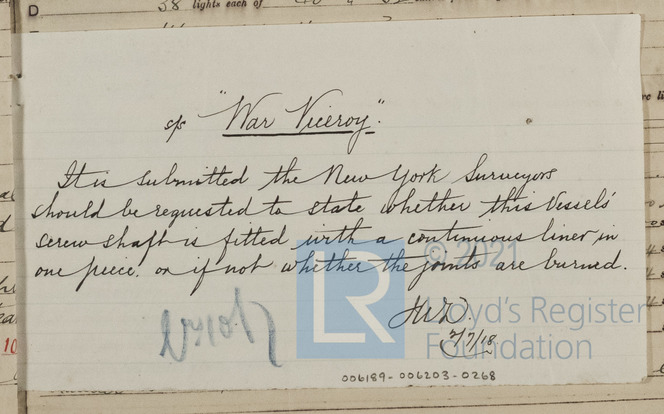 D 58 lights each of
s/s "War Viceroy".
It is submitted the New York Surveyors
should be requested to state whether this Vessels'
screw shaft is fitted with a continuous liner in
one piece. or if not whether the joints are burned.
© 2021
LR
Lloyd's Register
Foundation
7/7/18
006189-006203-0268
10